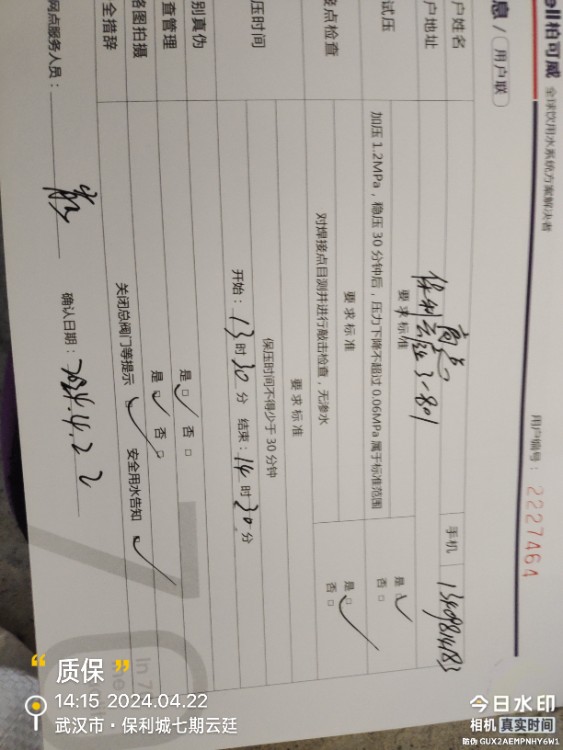 ell柏可威 全球饮用水系统方案解决者
息 / 用户联
用户编号： 2227464
户姓名
手机
户地址 保利云廷 3-801
要求标准
试压 加压 1.2MPa，稳压 30 分钟后，压力下降不超过 0.06MPa 属于标准范围 是□ ✓ 否□
要求标准
接点检查 对焊接点目测并进行敲击检查，无渗水 是□ ✓ 否□
要求标准
保压时间不得少于 30 分钟
压时间 开始：13 时 30 分 结束：14 时 30 分
别真伪 是□ ✓ 否□
查管理 是□ ✓ 否□
路图拍摄
全措辞 关闭总阀门等提示 ✓ 安全用水告知 ✓
网点服务人员： 确认日期：2024.4.22
In 7
“质保”
14:15 2024.04.22
武汉市·保利城七期云廷
今日水印
相机 真实时间
防伪 GUX2AEMPNHY6W1